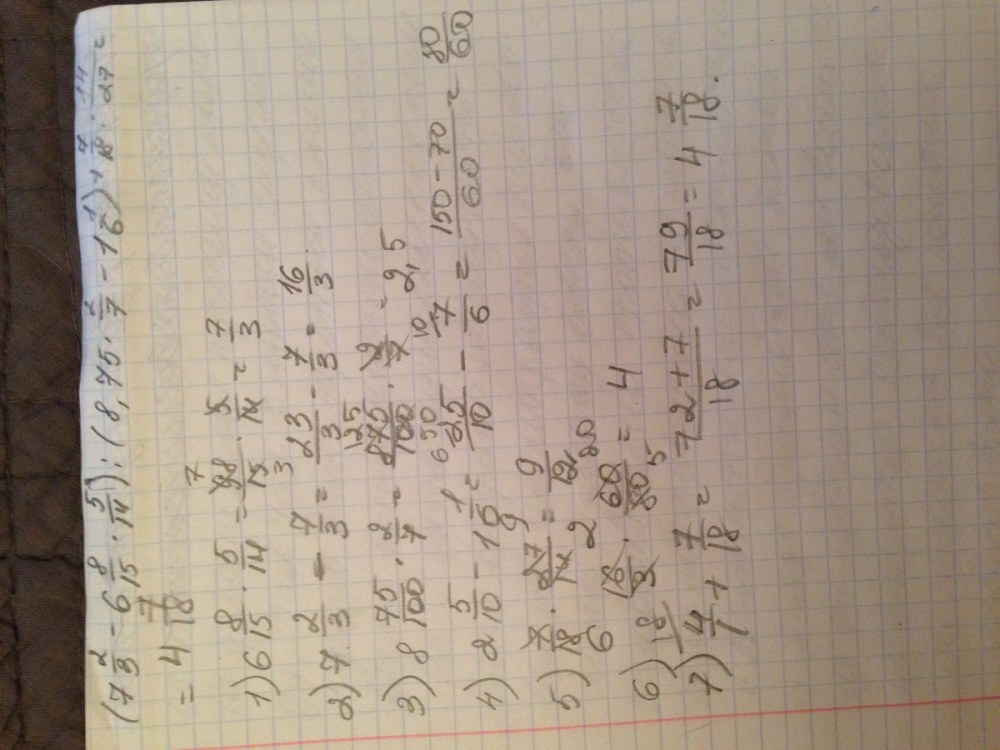 (7 2/3 - 6 8/15 · 5/14) : (8,75 · 2/7 - 1 1/6) + 7/18 : 14/27 =
= 4 7/18
1) 6 8/15 · 5/14 = 98/15 · 5/14 = 7/3
2) 7 2/3 - 7/3 = 23/3 - 7/3 = 16/3
3) 8 75/100 · 2/7 = 875/100 · 2/7 = 2,5
4) 2 5/10 - 1 1/6 = 25/10 - 7/6 = (150 - 70)/60 = 80/60
5) 7/18 · 27/14 = 9/12
6) 16/3 · 60/80 = 4
7) 4/1 + 7/18 = (72 + 7)/18 = 79/18 = 4 7/18.